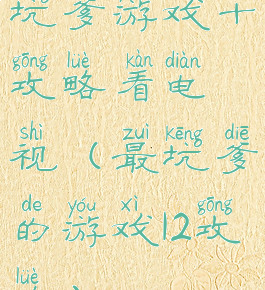 坑爹游戏十
gōng lüè kàn diàn
攻略看电
shì zuì kēng diē
视(最坑爹
de yóu xì gōng
的游戏12攻
lüè